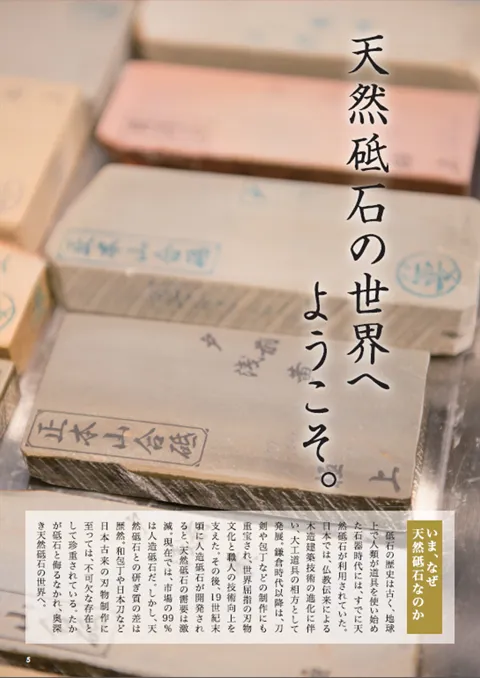 天然砥石の世界へ
ようこそ。
正本山合砥
正本山合砥
戸前
浅黄
上
いま、なぜ
天然砥石なのか
砥石の歴史は古く、地球
上で人類が道具を使い始め
た石器時代には、すでに天
然砥石が利用されていた。
日本では、仏教伝来による
木造建築技術の進化に伴
い、大工道具の相方として
発展。鎌倉時代以降は、刀
剣や包丁などの制作にも
重宝され、世界屈指の刃物
文化と職人の技術向上を
支えた。その後、19世紀末
頃に人造砥石が開発され
ると、天然砥石の需要は激
減。現在では、市場の99％
は人造砥石だ。しかし、天
然砥石との研ぎ質の差は
歴然。和包丁や日本刀など
日本古来の刃物制作に
至っては、不可欠な存在と
して珍重されている。たか
が砥石と侮るなかれ、奥深
き天然砥石の世界へ。
5